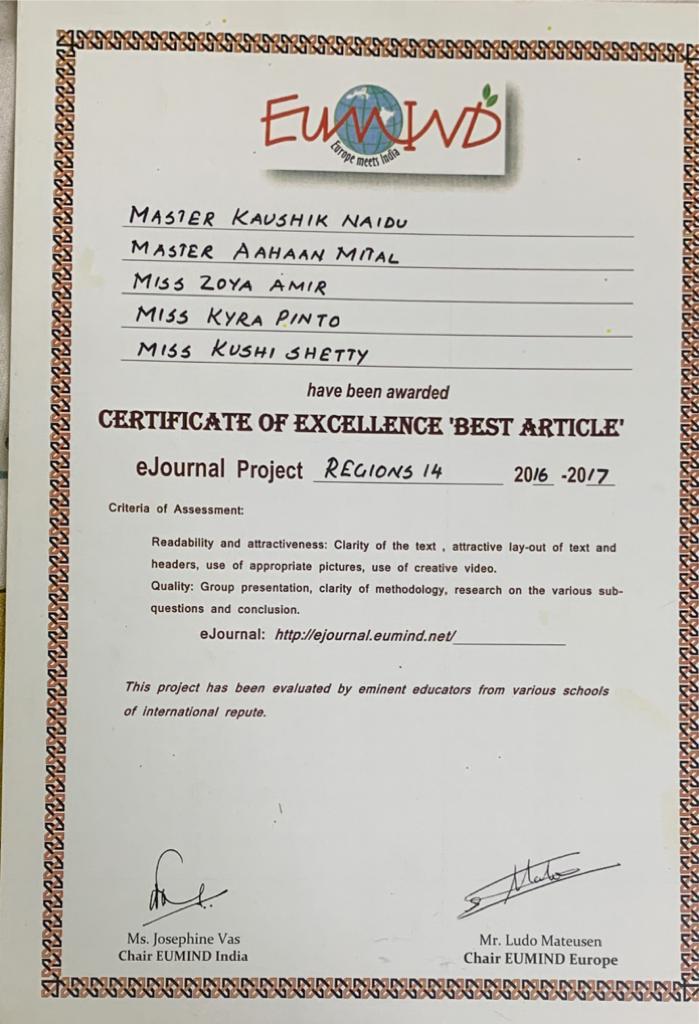 EUMIND
Europe meets India
MASTER KAUSHIK NAIDU
MASTER AAHAAN MITAL
MISS ZOYA AMIR
MISS KYRA PINTO
MISS KUSHI SHETTY
have been awarded
CERTIFICATE OF EXCELLENCE 'BEST ARTICLE'
eJournal Project REGIONS 14 2016 -2017
Criteria of Assessment:
Readability and attractiveness: Clarity of the text , attractive lay-out of text and
headers, use of appropriate pictures, use of creative video.
Quality: Group presentation, clarity of methodology, research on the various sub-
questions and conclusion.
eJournal: http://ejournal.eumind.net/
This project has been evaluated by eminent educators from various schools
of international repute.
Ms. Josephine Vas
Chair EUMIND India
Mr. Ludo Mateusen
Chair EUMIND Europe